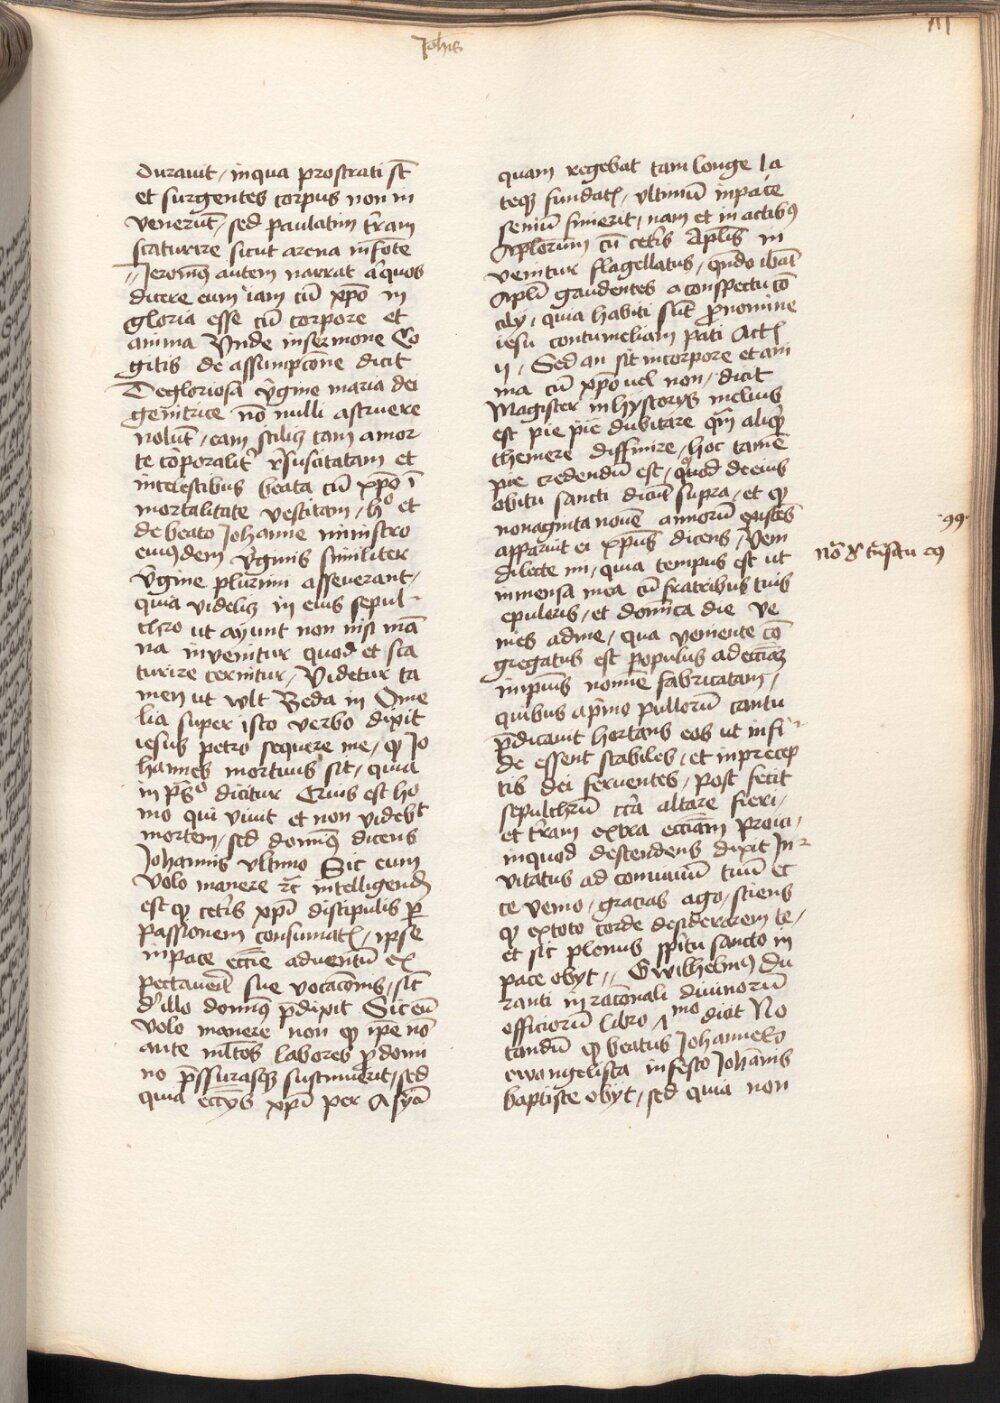 Joh̄is
111
durauit / in qua prostrati st̄
et surgentes corpus non in
venerūt / sed paulatim t̄ram
scaturire sicut arena in fōte
// Jeronimꝰ autem narrat a̍quos
dicere eum iam cū xp̄o in
gloria esse cū corpore et
anima Vnde in sermone Co
gitis de assumpcōne dicit
De gloriosa v̄gine maria dei
genitrice nō nulli astruere
nolūt / eam scilicꝫ tam a mor
te cōporalit̍ r̄suscitatam et
in celestibus beata cū xp̄o ī
mortalitate vestitam / hº et
de beato Johanne ministro
eiusdem v̄ginis similiter
v̄gine plurimi asseuerant /
quia videlicꝫ in eius sepul-
chro ut aẏunt non nisi mā
na inuenitur quod et sca
turire cernitur / Videtur ta
men ut wlt Beda in Ome
lia super isto verbo dixit
iesus petro sequere me / ꝙ Jo
hannes mortuus sit / quia
in ps̄º dicitur Quis est ho
mo qui viuit et non videbt
mortem / sed dominꝰ dicens
Johannis vltimo Sic eum
volo manere ꝛc̄ intelligend̄
est ꝙ cet̄is xp̄i discipulis ꝑ
passionem consumatꝭ / ipse
in pace eccīe aduentū ex
pectauerit sue vocacōnis / sic̄
d̍ illo dominꝰ p̄dixit Sic eū
volo manere non ꝙ ip̄e nō
ante ml̄tos labores ꝓ domi
no p̄ssurasqꝫ sustinuerit / sed
quia eccīijs xp̄i per Asyā
quam regebat tam longe la
teqꝫ fundatꝭ / vltimū in pace
seniū finierit / nam et in actibꝰ
Aplorum cū cet̄is Apl̄is in
uenitur flagellatus / qn̄do ibāt
Apl̄i gaudentes a conspectu cō
cilij / quia habiti sūt ꝓ nomine
iesu contumeliam pati Actꝭ
ij / Sed an sit in corpore et ani
ma cū xp̄o uel non / dicit
Magister in hystorijs melius
est pie pie dubitare qͣm aliqͥd
themere diffinire / hoc tamē
pie credendū est / quod de eius
obitu sancti dicūt supra / et ꝙ
nonaginta nouē annorū existēs
apparuit ei xp̄us dicens / Veni
dilecte mi / quia tempus est ut
in mensa mea cū fratribus tuis
epuleris / et domīca die ve
nies ad me / qua veniente cō
gregatus est populus ad eccīaꝫ
in ipsius nomīe fabricatam /
quibus a p̍mo pullorū cantu
p̄dicauit hortans eos ut in fi-
de essent stabiles / et in precep
tis dei feruentes / post fecit
sepulchrū circa altare fieri /
et t̄ram extra eccīam proici /
in quod descendens dixit In-
vitatus ad conuiuiū tuū et
ce venio / gracias ago / sciens
ꝙ ex toto corde desiderarem te /
et sic plenus sp̄itu sancto in
pace obijt // Gwilhelmꝰ Du
ranti in racōnali diuinorū
officiorū libro ᴧ mo dicit No
tandū ꝙ beatus Johannes
ewangelista in festo Johānis
baptiste obijt / sed quia non
·99·